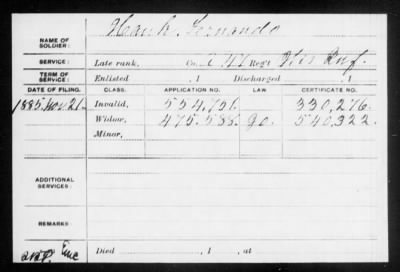 NAME OF SOLDIER: Hauk, Fernando
SERVICE: Late rank, Co. A 47 Reg't Wis Inf.
TERM OF SERVICE: Enlisted , 1 Discharged , 1
DATE OF FILING. CLASS. APPLICATION NO. LAW. CERTIFICATE NO.
1885 Nov 21 Invalid, 554,751 330,276.
Widow, 475.588. 540,322
Minor,
ADDITIONAL SERVICES:
REMARKS:
Died , 1 , at